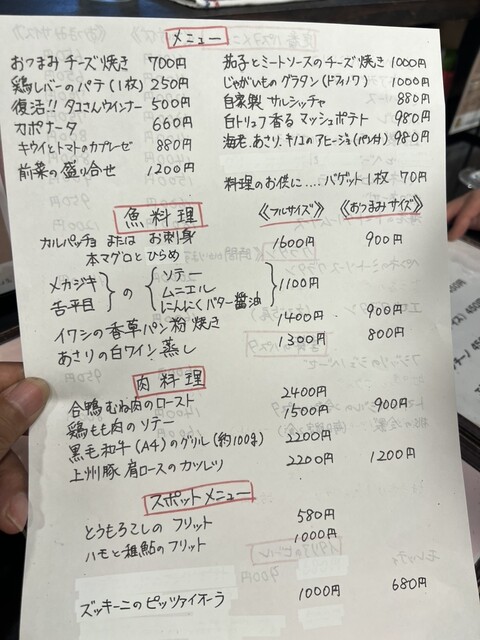 メニュー
おつまみチーズ焼き 700円
鶏レバーのパテ(1枚) 250円
復活!! タコさんウインナー 500円
カポナータ 660円
キウイとトマトのカプレーゼ 880円
前菜の盛り合せ 1200円
茄子とミートソースのチーズ焼き 1000円
じゃがいものグラタン(ドフィノワ) 1000円
自家製 サルシッチャ 880円
白トリュフ香る マッシュポテト 980円
海老、あさり、キノコのアヒージョ(パン付) 980円
料理のお供に.... バゲット1枚 70円
《フルサイズ》 《おつまみサイズ》
魚料理
カルパッチョ または お刺身
本マグロとひらめ 1600円 900円
メカジキ
舌平目
の
ソテー
ムニエル
にんにくバター醤油
1100円
イワシの香草パン粉焼き 1400円 900円
あさりの白ワイン蒸し 1300円 800円
肉料理
合鴨むね肉のロースト 2400円
鶏もも肉のソテー 1500円 900円
黒毛和牛(A4)のグリル(約100g) 2200円
上州豚 肩ロースのカツレツ 2200円 1200円
スポットメニュー
とうもろこしの フリット 580円
ハモと稚鮎のフリット 1000円
ズッキーニのピッツァイオーラ 1000円 680円